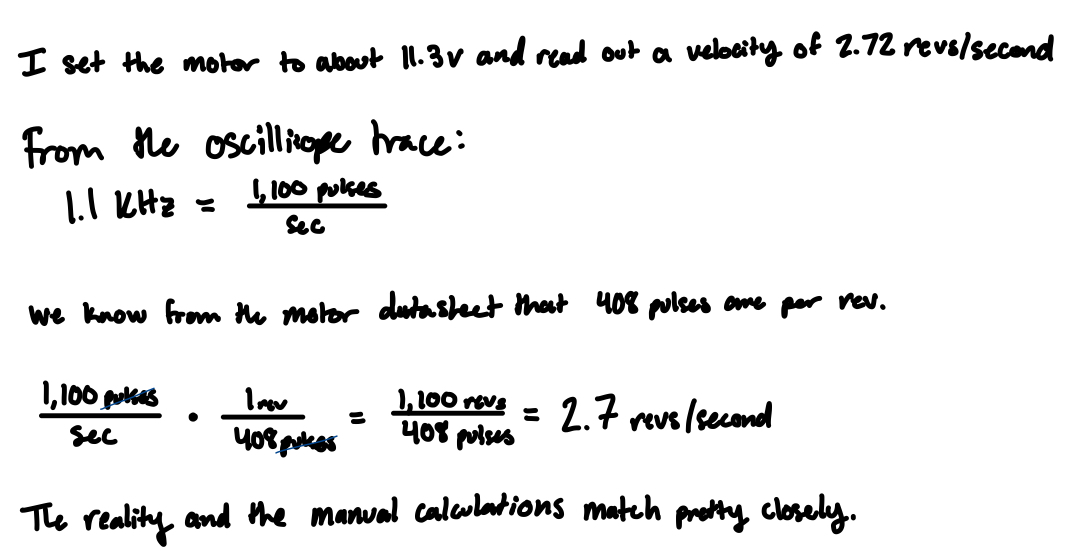 I set the motor to about 11.3v and read out a velocity of 2.72 revs/second
From the oscilliscope trace:
1.1 KHz = 1,100 pulses / sec
We know from the motor datasheet that 408 pulses are per rev.
1,100 pulses / sec · 1 rev / 408 pulses = 1,100 revs / 408 pulses = 2.7 revs/second
The reality and the manual calculations match pretty closely.